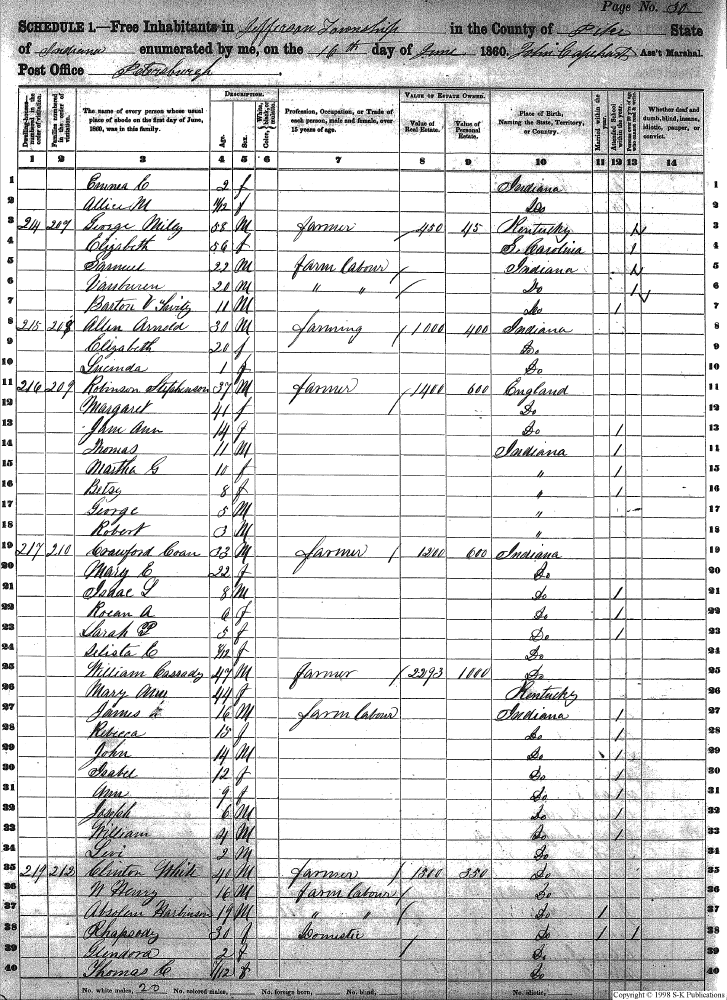 Page No. 30
SCHEDULE 1.—Free Inhabitants in Jefferson Township in the County of Pike State
of Indiana enumerated by me, on the 16th day of June 1860. John Capehart Ass't Marshal.
Post Office Petersburgh
DESCRIPTION. VALUE OF ESTATE OWNED.
Dwelling-houses—numbered in the order of visitation. Families numbered in the order of visitation. The name of every person whose usual place of abode on the first day of June, 1860, was in this family. Age. Sex. White, black, or mulatto. Profession, Occupation, or Trade of each person, male and female, over 15 years of age. Value of Real Estate. Value of Personal Estate. Place of Birth, Naming the State, Territory, or Country. Married within the year. Attended School within the year. Whether deaf and dumb, blind, insane, idiotic, pauper, or convict.
1 2 3 4 5 6 7 8 9 10 11 12 13 14
1 Emma C 2 f Indiana 1
2 Allice M f Do 2
3 214 207 George Miley 58 M farmer / 450 45 Kentucky 3
4 Elizabeth 56 f S. Carolina / 4
5 Samuel 22 M Farm Labour / Indiana 5
6 Vanburen 20 M " " / Do 6
7 Barton V 11 M Do / 7
8 215 208 Allen Arnold 30 M farming / 1000 400 Indiana 8
9 Elizabeth 20 f Do 9
10 Lucinda 1 f Do 10
11 216 209 Robinson Stephenson 37 M farmer / 1400 600 England 11
12 Margaret 41 f Do 12
13 Jane Ann 14 f Do / 13
14 Thomas 11 M Indiana / 14
15 Martha G 10 f " / 15
16 Betsy 8 f " / 16
17 George 5 M " 17
18 Robert 3 M " 18
19 217 210 Crawford Coan 33 M farmer / 1200 600 Indiana 19
20 Mary E 22 f Do 20
21 Isaac L 8 M Do / 21
22 Rocan A 6 f Do / 22
23 Sarah P 5 f Do / 23
24 Selista C f Do 24
25 William Cassady 47 M farmer / 2293 1000 Do 25
26 Mary Ann 44 f Kentucky 26
27 James 16 M farm Labour Indiana / 27
28 Rebecca 15 f Do / 28
29 John 14 M Do / 29
30 Isabel 12 f Do / 30
31 Ann 9 f Do / 31
32 Joseph 6 M Do / 32
33 William 4 M Do / 33
34 Levi 2 M Do 34
35 219 212 Clinton White 40 M farmer / 1500 350 Do 35
36 W Henry 16 M farm Labour / Do 36
37 Absolem Harbinson 19 M " " / Do / 37
38 Rhapsody 30 f Domestic Do / / 38
39 Glendora 2 f Do 39
40 Thomas C Do 40
No. white males, 20 No. colored males, No. foreign born, No. blind, No. idiotic,
Copyright © 1998 S-K Publications